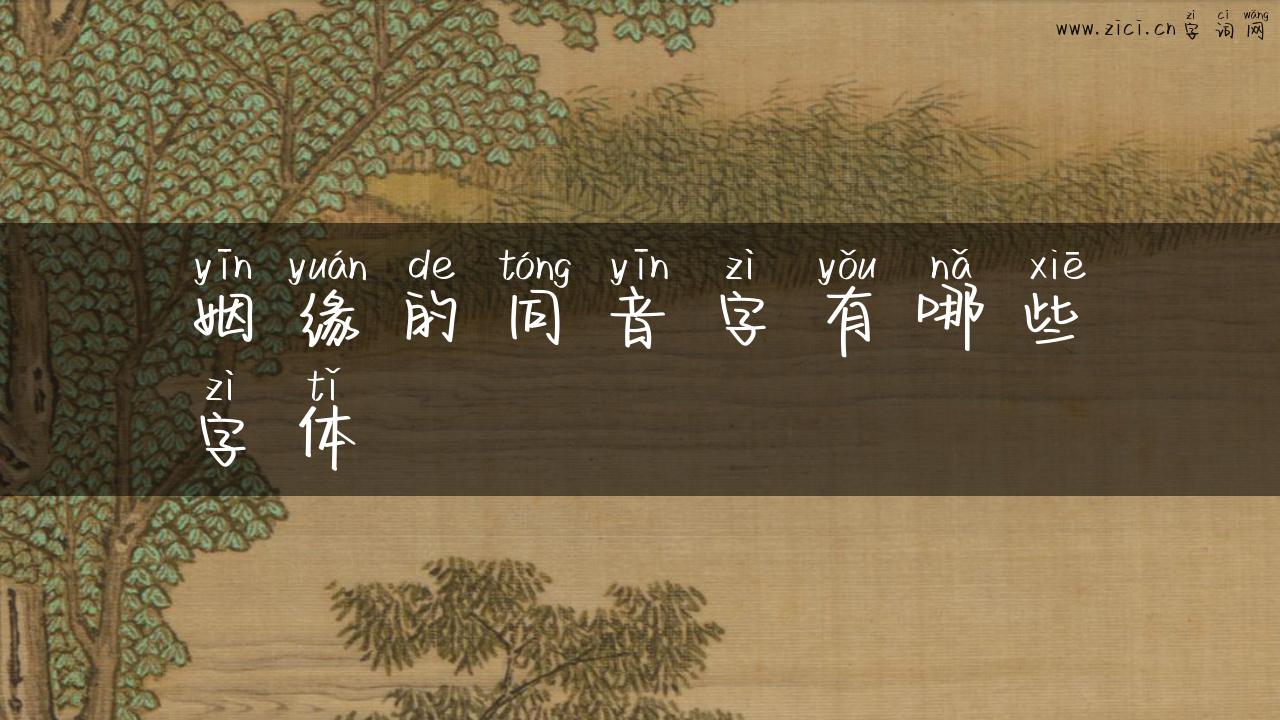 zì cí wǎng
www.zici.cn 字词网
yīn yuán de tóng yīn zì yǒu nǎ xiē
姻缘的同音字有哪些
zì tǐ
字体